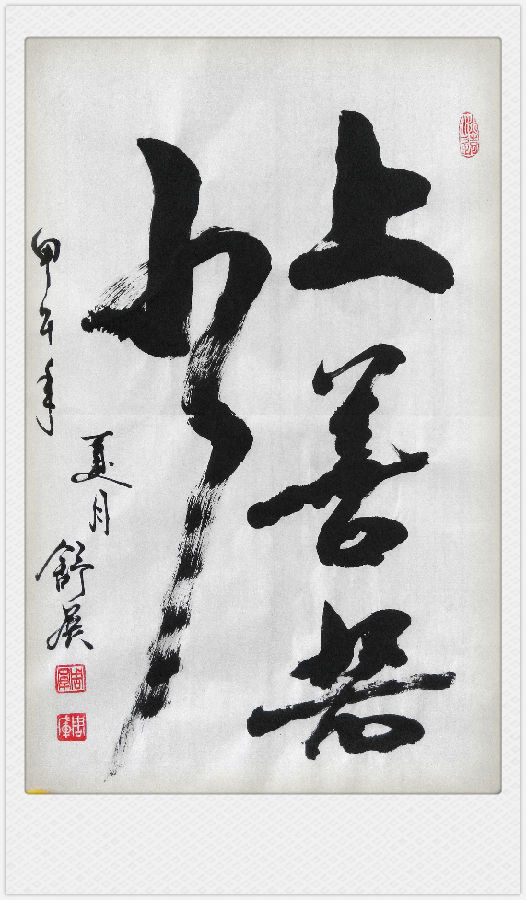 上善若水
甲午年
夏月
舒